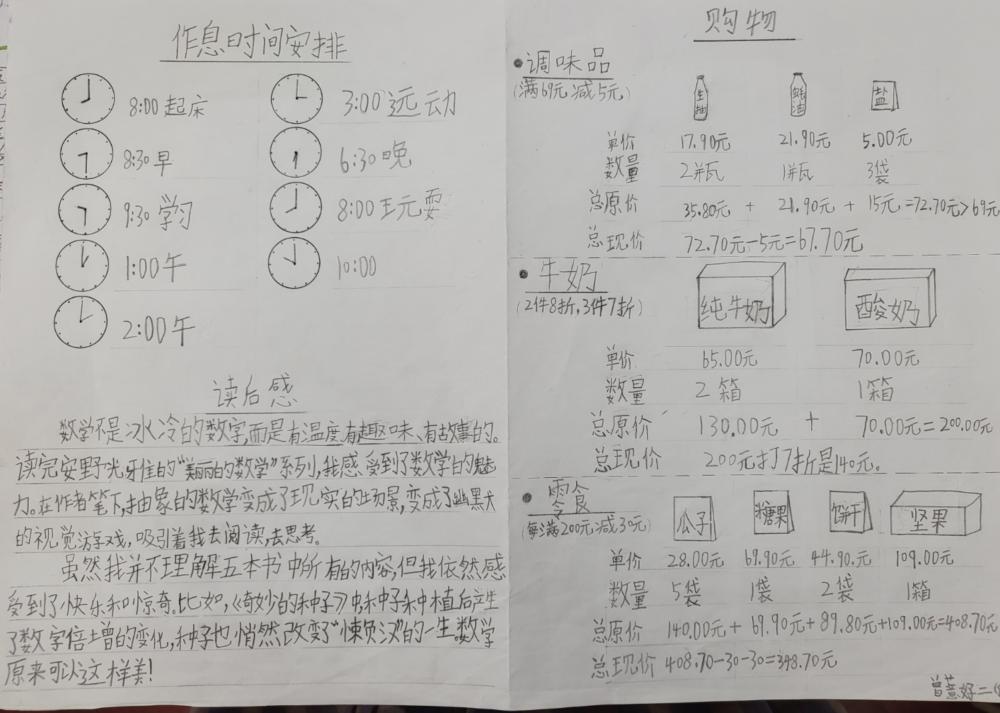 作息时间安排
8:00起床
8:30早
9:30学习
1:00午
2:00午
3:00远动
6:30晚
8:00玩耍
10:00
读后感
数学不是冰冷的数字,而是有温度有趣味、有故事的。
读完安野光雅的“美丽的数学”系列,我感受到了数学的魅
力。在作者笔下,抽象的数学变成了现实的场景,变成了幽黑犬
的视觉游戏,吸引着我去阅读,去思考。
虽然我并不理解五本书中所有的内容,但我依然感
受到了快乐和惊奇。比如,《奇妙的种子》中,种子种植后产生
了数字倍增的变化,种子也悄然改变了“懒负汉”的一生。数学
原来可以这样美!
购物
•调味品
(满69元减5元)
生抽 蚝油 盐
单价 17.90元 21.90元 5.00元
数量 2瓶 1瓶 3袋
总原价 35.80元 + 21.90元 + 15元=72.70元>69元
总现价 72.70元-5元=67.70元
•牛奶
(2件8折,3件7折)
纯牛奶 酸奶
单价 65.00元 70.00元
数量 2箱 1箱
总原价 130.00元 + 70.00元=200.00元
总现价 200元打7折是140元。
•零食
(每满200元减30元)
瓜子 糖果 饼干 坚果
单价 28.00元 69.90元 44.90元 109.00元
数量 5袋 1袋 2袋 1箱
总原价 140.00元+69.90元+89.80元+109.00元=408.70元
总现价 408.70-30-30=348.70元